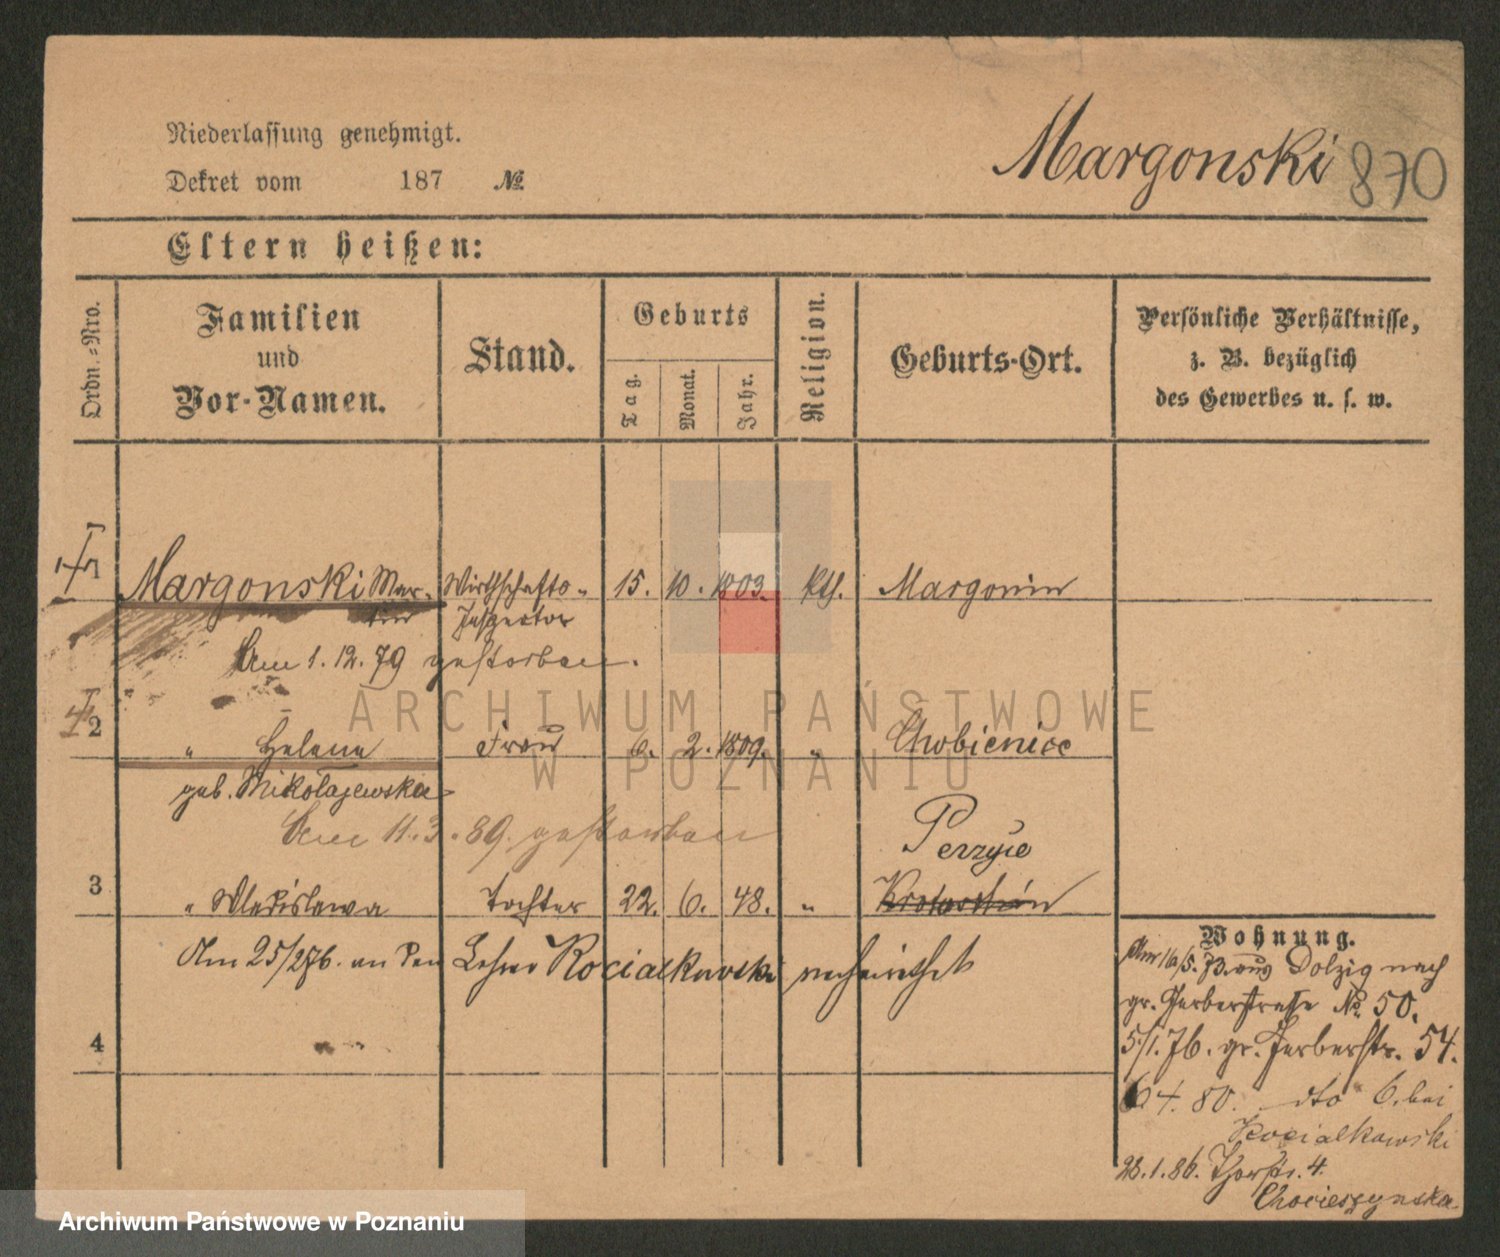 Niederlassung genehmigt.
Dekret vom 187 №
Margonski 870
Eltern heißen:
Ordn.-Nro.
Familien
und
Vor-Namen.
Stand.
Geburts
Tag.
Monat.
Jahr.
Religion.
Geburts-Ort.
Persönliche Verhältnisse,
z. B. bezüglich
des Gewerbes u. s. w.
1 Margonski Mar- Wirthschafts- 15. 10. 1803. kth. Margonin
tin Inspector
Am 1. 12. 79 gestorben.
2 " Helena Frau 6. 2. 1809. " Chobienice
geb. Mikolajewska
Am 11. 3. 89. gestorben
Perzyce
3 " Wladislawa Tochter 22. 6. 48. " Krotoschin
Am 25/2 76. an den Lehrer Kocialkowski verheirathet
4
Wohnung.
Am 16/5. 73. aus Dolzig nach
gr. Gerberstrasse № 50.
5/1. 76. gr. Gerberstr. 54.
6 4. 80. dto 6. bei
Kocialkowski
28. 1. 86. Thorstr. 4.
Chocieszynska
ARCHIWUM PAŃSTWOWE
W POZNANIU
Archiwum Państwowe w Poznaniu